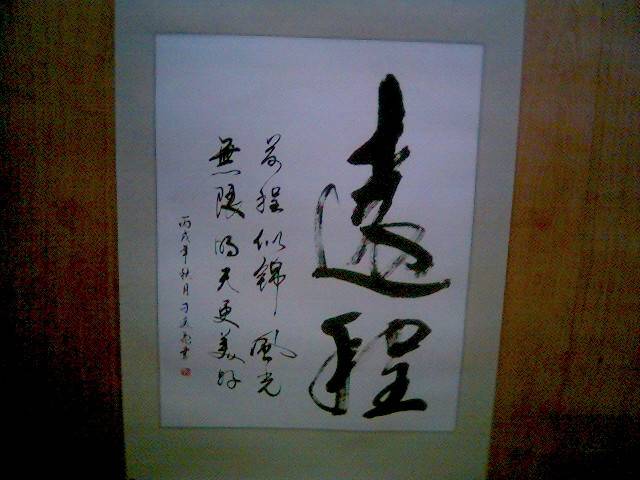 遠程
前程似錦風光
無限明天更美好
丙戌年秋月